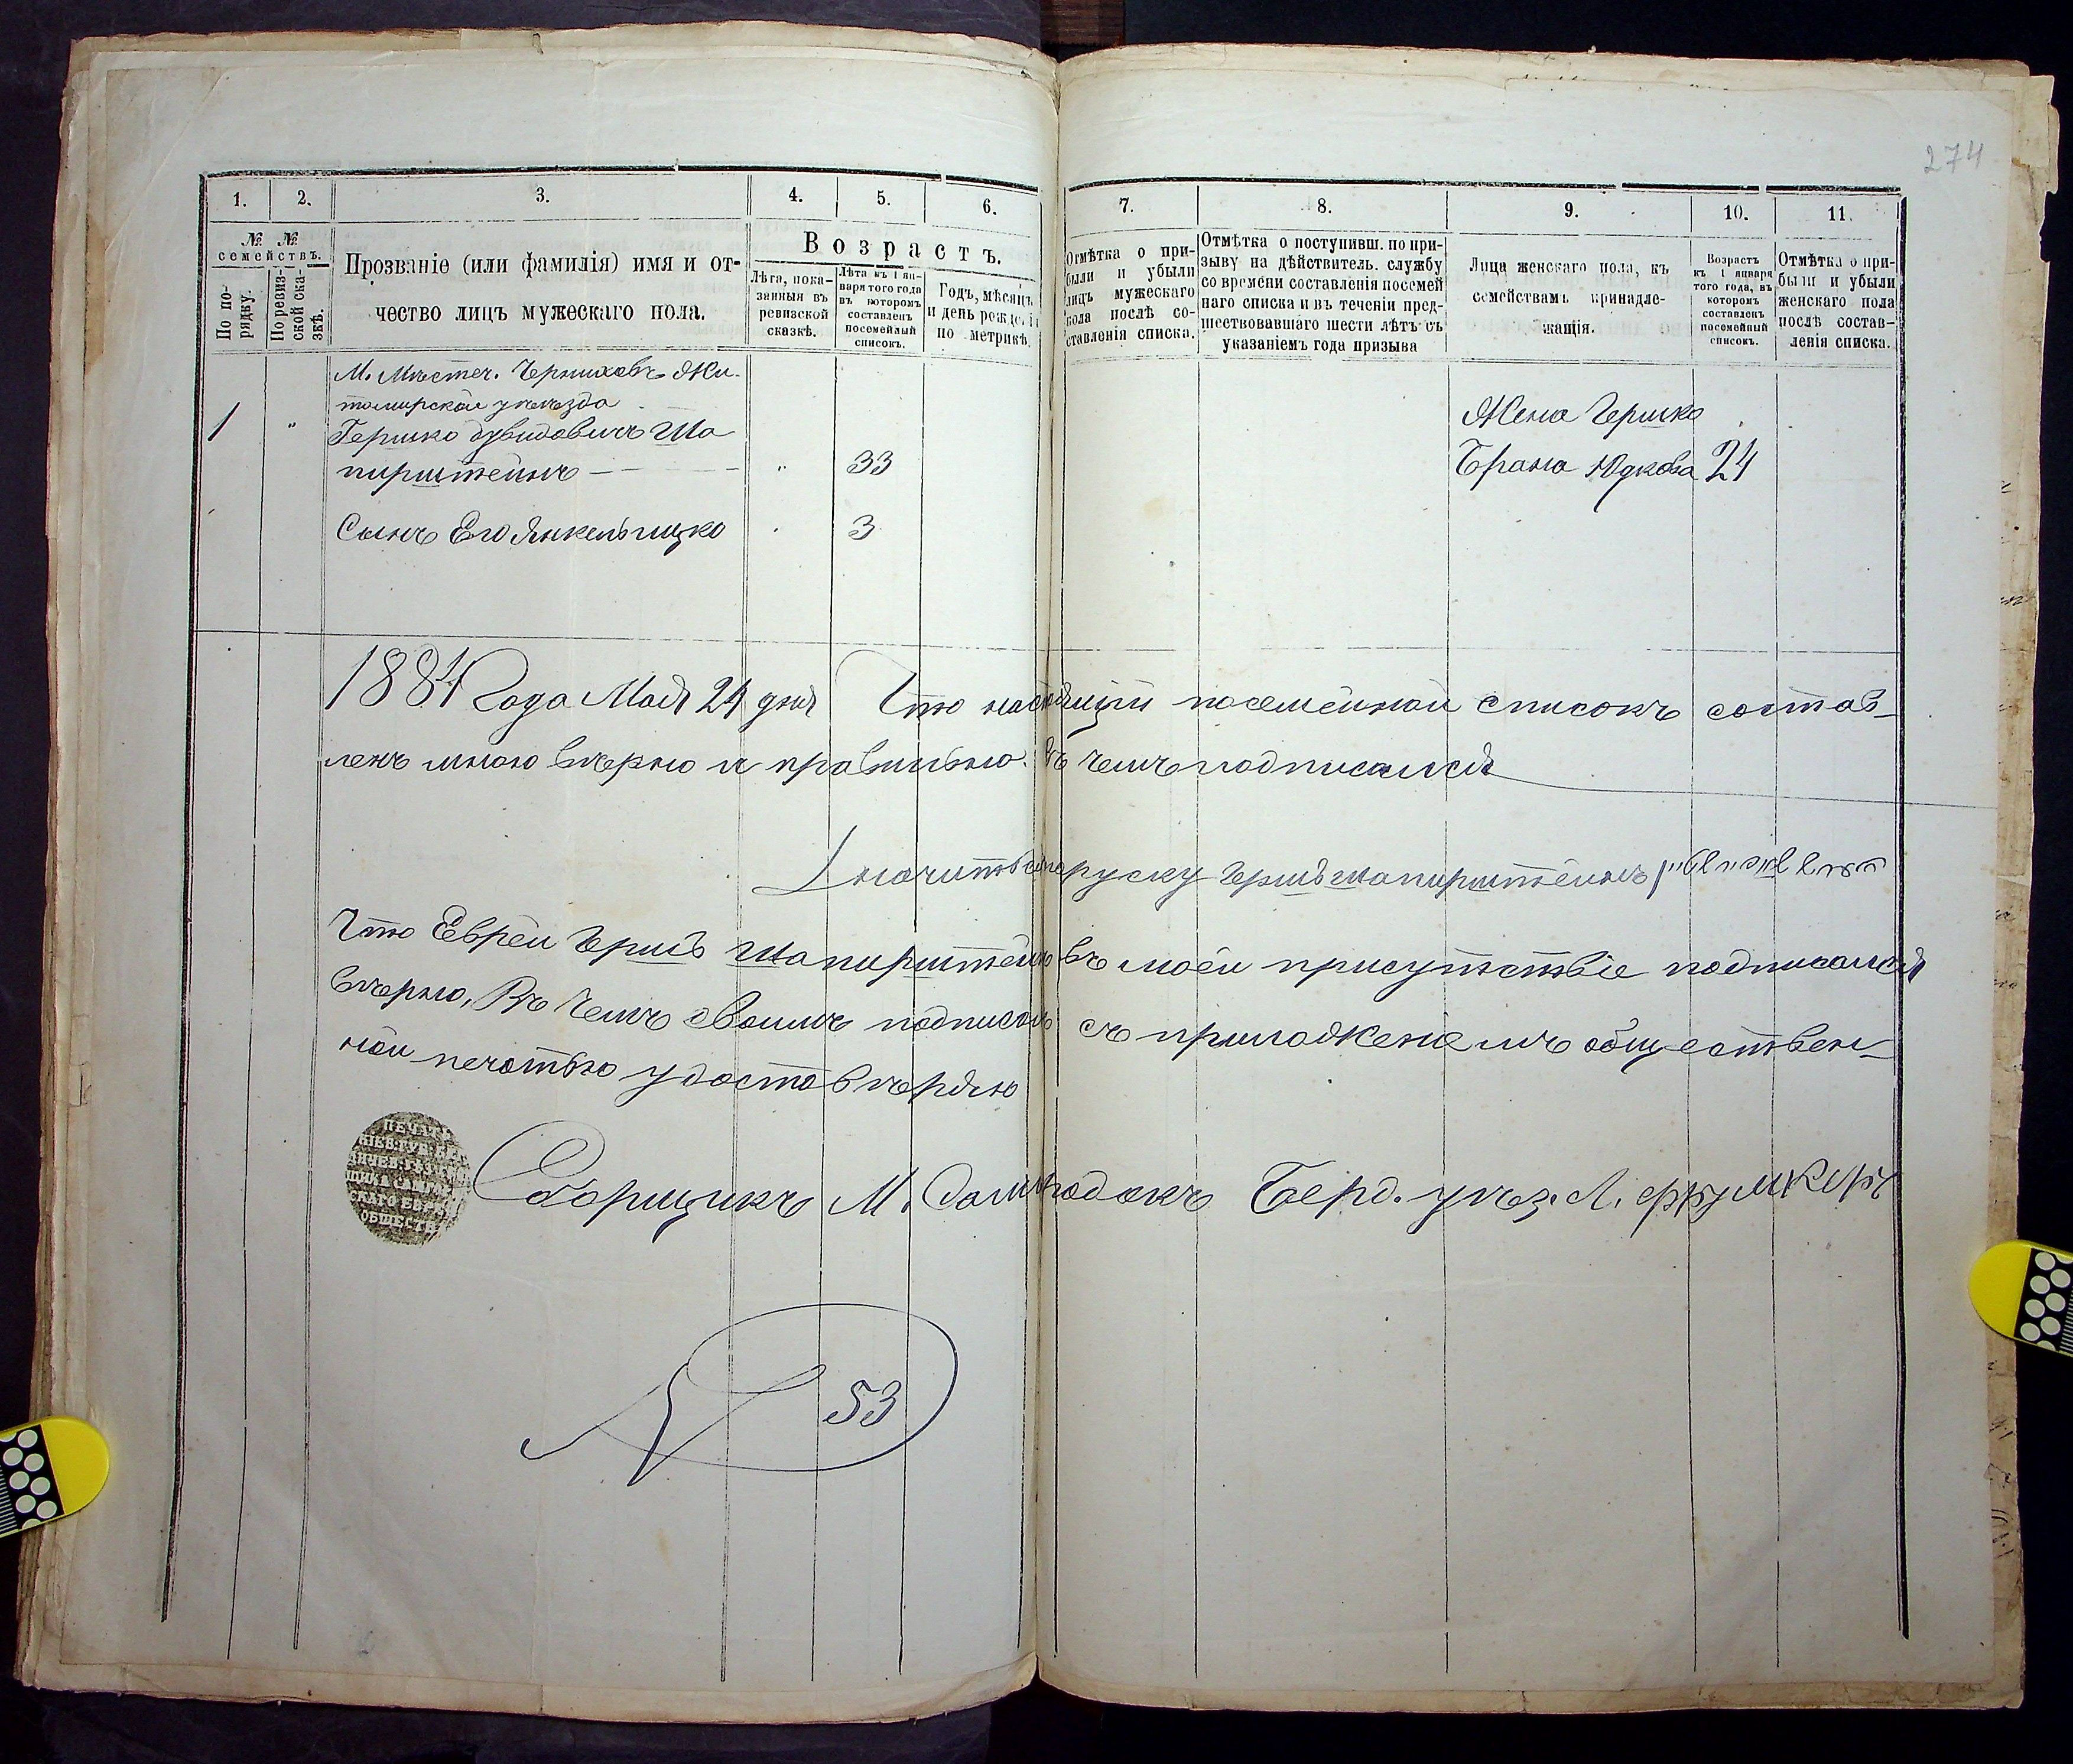 274
1. 2. 3. 4. 5. 6. 7. 8. 9. 10. 11.
№ № семействъ.
По порядку.
По ревизской сказкѣ.
Прозваніе (или фамилія) имя и от-
чество лицъ мужескаго пола.
Возрастъ.
Лѣта, пока-
занныя въ
ревизской
сказкѣ.
Лѣта къ 1 ян-
варя того года
въ которомъ
составленъ
посемейный
списокъ.
Годъ, мѣсяцъ
и день рожденія
по метрикѣ.
Отмѣтка о при-
были и убыли
лицъ мужескаго
пола послѣ со-
ставленія списка.
Отмѣтка о поступивш. по при-
зыву на дѣйствитель. службу
со времени составленія посемей
наго списка и въ теченіи пред-
шествовавшаго шести лѣтъ съ
указаніемъ года призыва
Лица женскаго пола, къ
семействамъ принадле-
жащія.
Возрастъ
къ 1 января
того года, въ
которомъ
составленъ
посемейный
списокъ.
Отмѣтка о при-
были и убыли
женскаго пола
послѣ состав-
ленія списка.
М. Мѣстеч. Черниховъ Жи-
томирской уѣѣзда
1 " Гершко Дувидовичъ Ша
пирштейнъ — " 33
Сынъ Его Янкель Ицко 3
Жена Гершка
Брана Юдкова 24
1884 Года Мая 24 дня Что настоящій посемейной списокъ состав-
ленъ мною вѣрно и правильно. Въ чемъ подписался
Значитъ по руску Гершъ Шапирштейнъ
Что Еврей Гершъ Шапирштейнъ въ моей присутствіе подписался
вѣрно, Въ Чемъ своимъ подписомъ съ приложеніемъ обществен-
ной печатью удоставѣряю
ПЕЧАТЬ
КІЕВ. ГУБ. БЕР
ДИЧЕВ. УѢЗ
ОБЩЕСТВА
Сборщикъ М. Самгородокъ Берд. уѣз. Л. Фрумкеръ
N 53